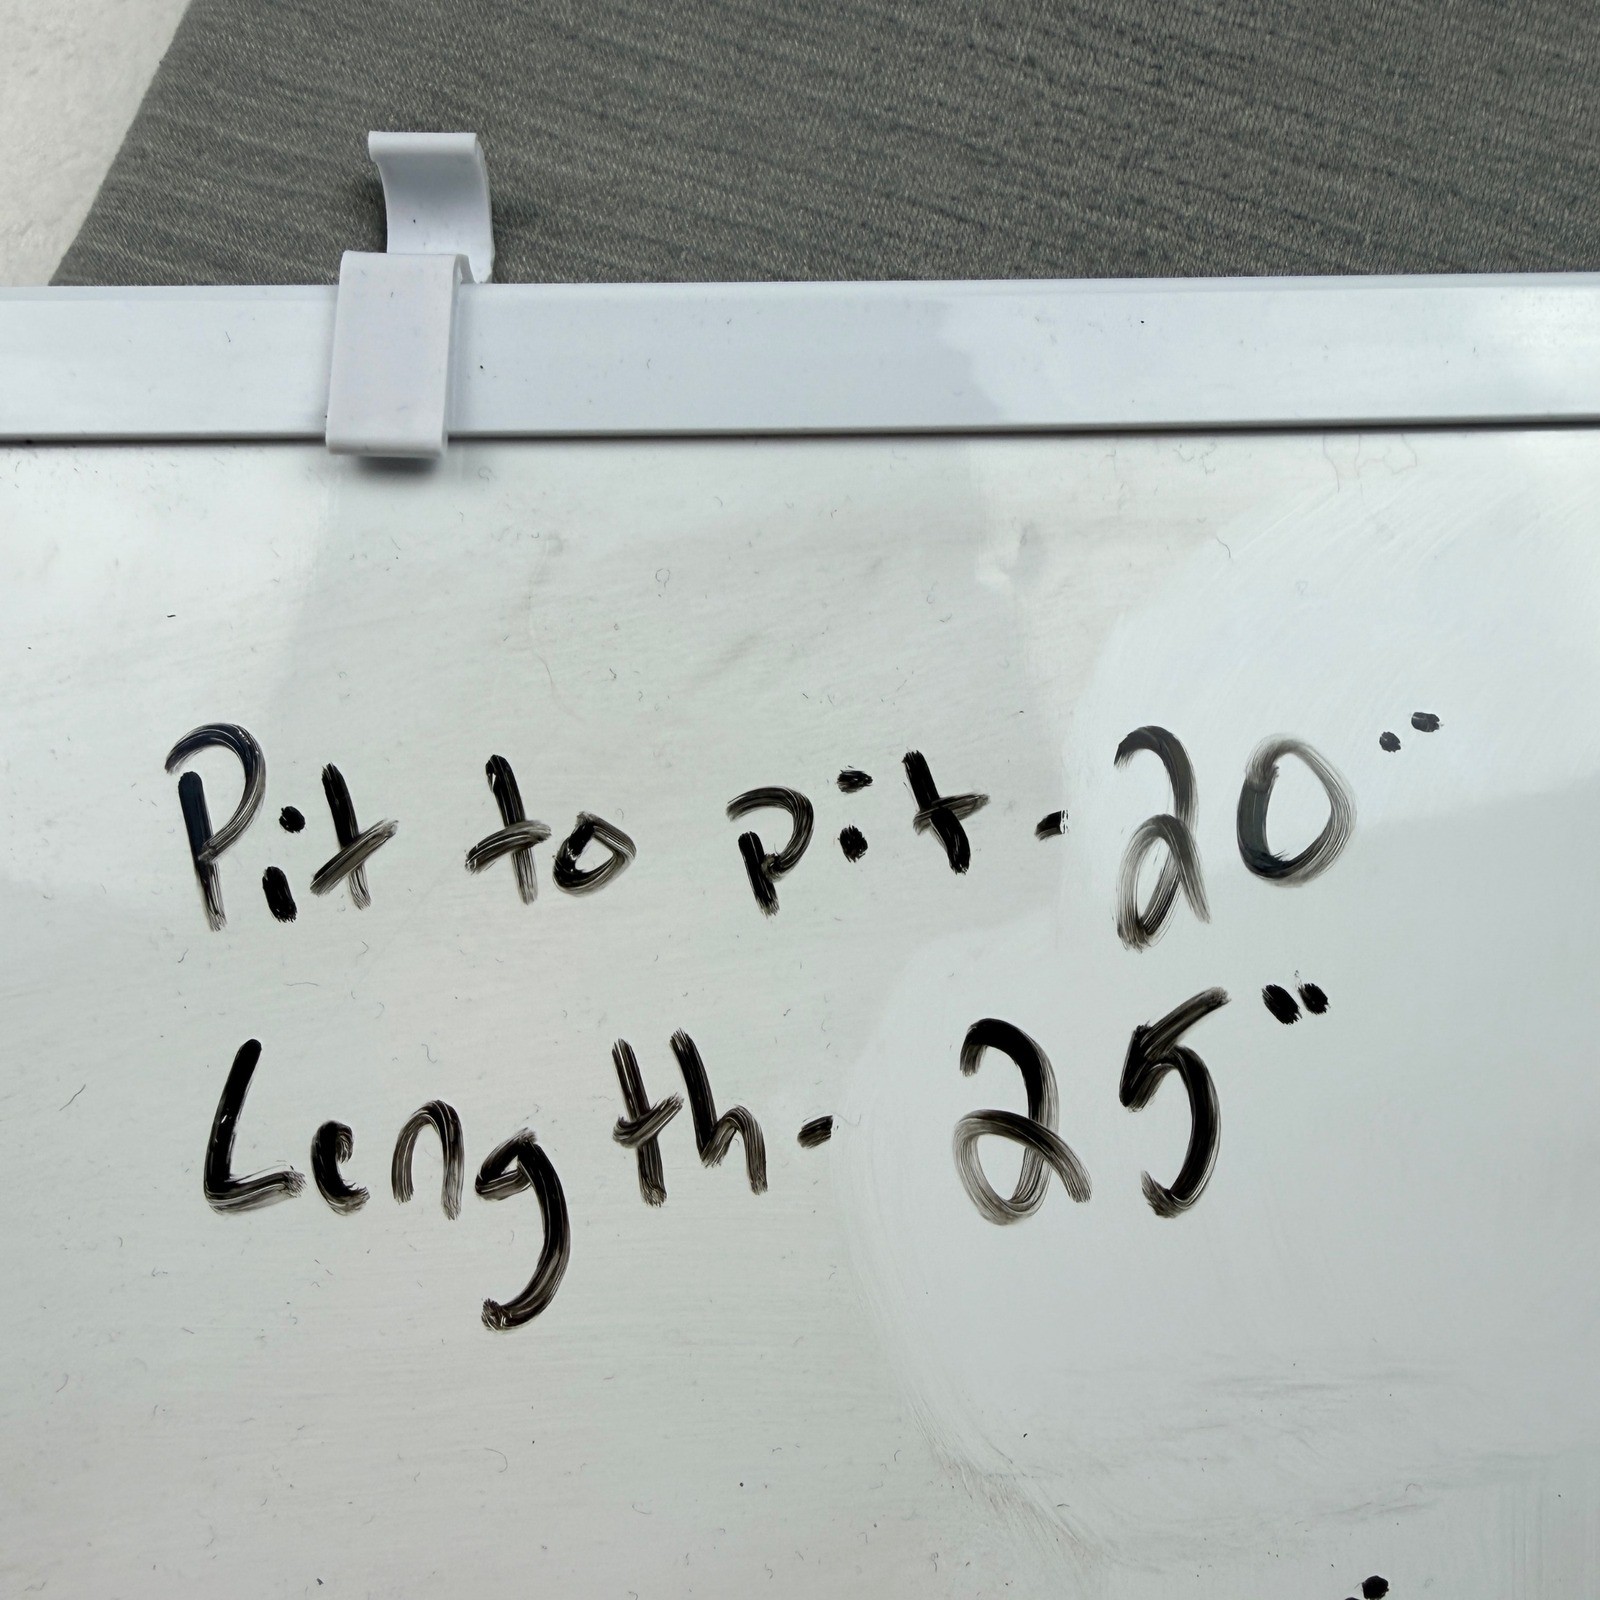 Pit to pit - 20"
Length - 25"